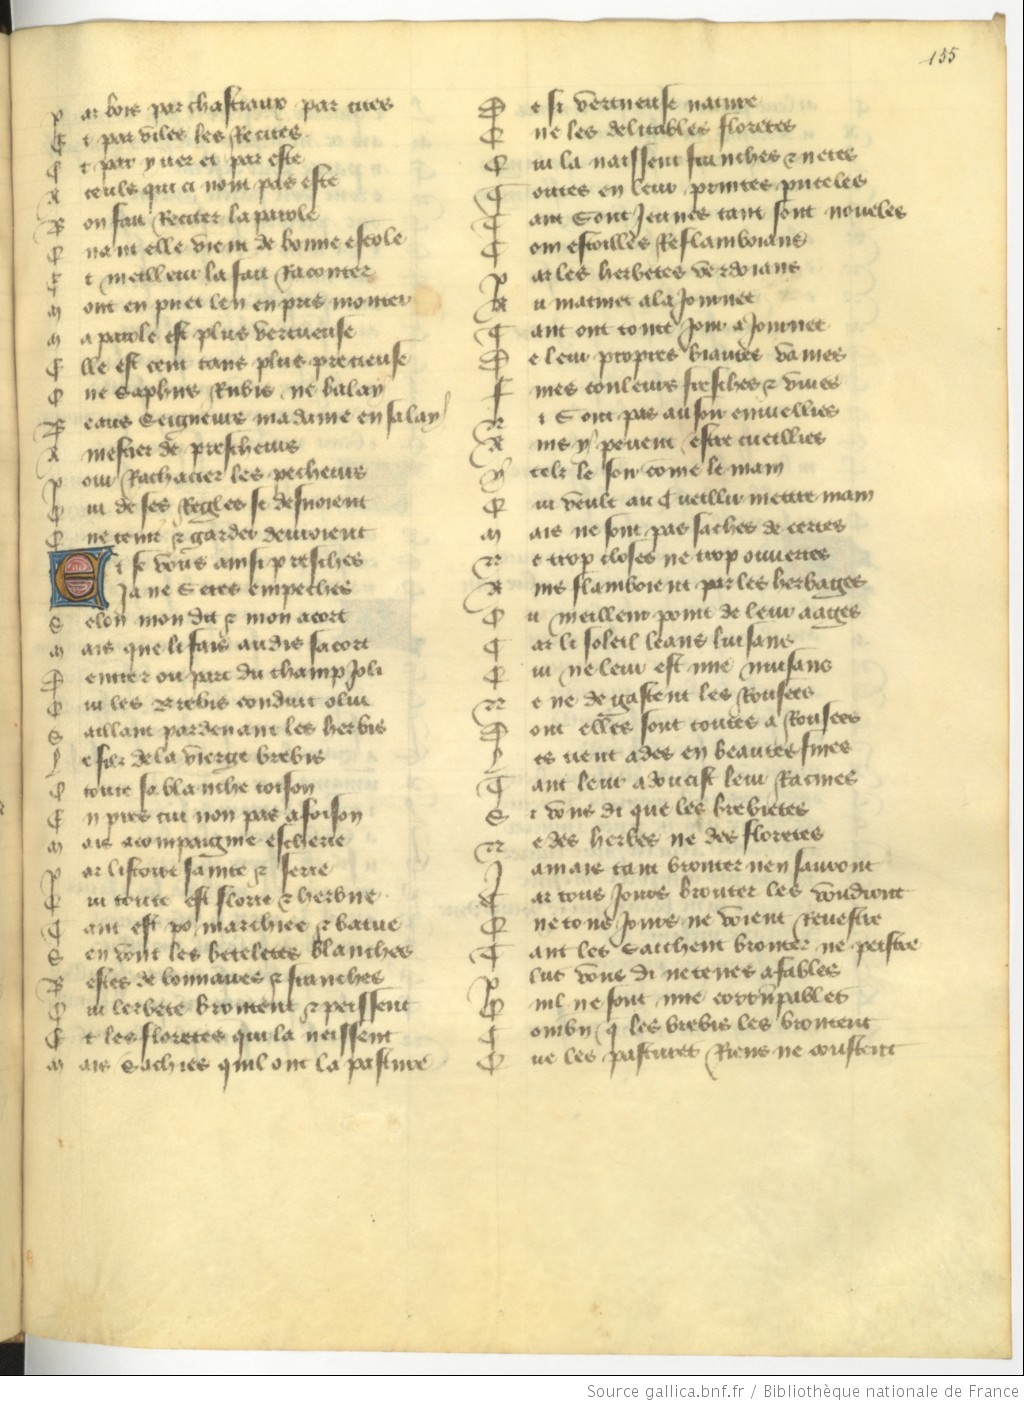 155
P ar bois par chastiaux par rues
E t par viles les Recites
E t par yver et par este
A ceuls qui ci nont pas este
B on fait Reciter la parole
Q uant elle vient de bonne escole
E t meilleur la fait Raconter
M ont en puet len en pris monter
M a parole est plus vertueuse
E lle est cent tans plus precieuse
Q ue Saphirs Rubis ne balay
B eaus Seigneurs ma dame en sa lay
A mestier de prescheurs
P our Rachater les pecheurs
Q ui de ses Regles se desvoient
Q ue tenir & garder devroient
E t se vous ainsi presches
Ja ne Seres empeches
S elon mon dit & mon acort
M ais que li fais au dis sacort
D entrer ou parc du champ joli
O u les Brebis conduit o lui
S aillant par devant les herbis
L e filz de la vierge brebis
O toute sa blanche toison
E n pres cui non pas a foison
M ais acompaignie escherie
P ar lestroite sainte & serie
Q ui toute est florie & herbue
T ant est po marchiee & batue
S en vont les beteletes blanches
B estes de bonnaires & franches
Q ui lerbete broutent & peissent
E t les floretes qui la neissent
M ais Sachies quil ont la pasture
D e si vertueuse nature
Q ue les delitables floretes
Q ui la naissent franches & netes
T outes en leur printes puceles
T ant Sont Jeunes tant sont noveles
C om estoilles Reflamboians
P ar les herbetes verdoians
A u matinet a la Journee
T ant ont toute Jour a Journee
D e leur propres biautes vaives
F ines couleurs fresches & vives
N i Sont pas au soir enviellies
A ins y pevent estre cueillies
Y telz le soir come le main
Q ui veult au Cueillir metre main
M ais ne sont pas saches de certes
N e trop closes ne trop ouvertes
A ins flamboient par les herbages
O u meilleur point de leur aages
C ar li soleil leans luisans
Q ui ne leur est mie nuisans
N e ne degastent les Rousees
D ont elles sont toutes a Rousees
L es tient ades en beautes fines
T ant leur adoucist leur Racines
S i vous di que les brebietes
N e des herbes ne des floretes
J amais tant brouter nen sauront
C ar tous Jours brouter les voudront
Q ue tous Jours ne voient Revestre
T ant les Sacchent brouter ne pestre
P lus vous di ne tenes a fables
Q uil ne sont mie corrupables
C ombn q les brebis les broutent
Q ue les pastures Riens ne coustent
Source gallica.bnf.fr / Bibliothèque nationale de France